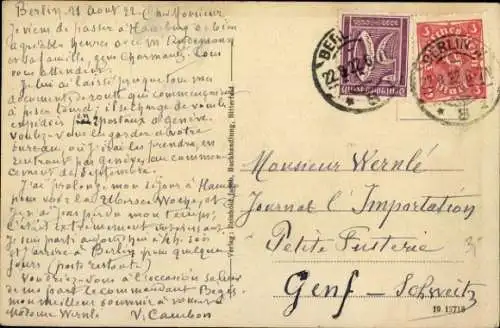 Berlin 21 Août 22. Cher Monsieur
Je viens de passer à Hambourg de bien
agréables heures avec M.
et sa famille, gens charmants. Nous
vous attendions.
J'ai laissé jusque tous mes
documents de route qui commençaient
à peser lourd; il se charge de vous les
expédier postaux à Genève.
Voulez-vous les garder à votre
bureau, où j'irai les prendre, en
rentrant par Genève, au commen-
cement de Septembre.
J'ai prolongé mon séjour à Hambg
pour voir la Übersee Woche, et
je n'ai pas perdu mon temps;
C'était extrêmement intéressant.
Je suis parti aujourd'hui à 4h.
et j'arrive à Berlin pour quelques
jours (poste restante)
Voudriez-vous à l'occasion saluer
de ma part le commandant
mon meilleur souvenir à vous et à
Madame Wernlé V. Cambon
Verlag: Buchhandlung, Bitterfeld
BERLIN
22.8.22.6-7
BERLIN
Monsieur Wernlé
Journal l'Importation
Petite Fusterie
Genf - Schweiz
19 15718